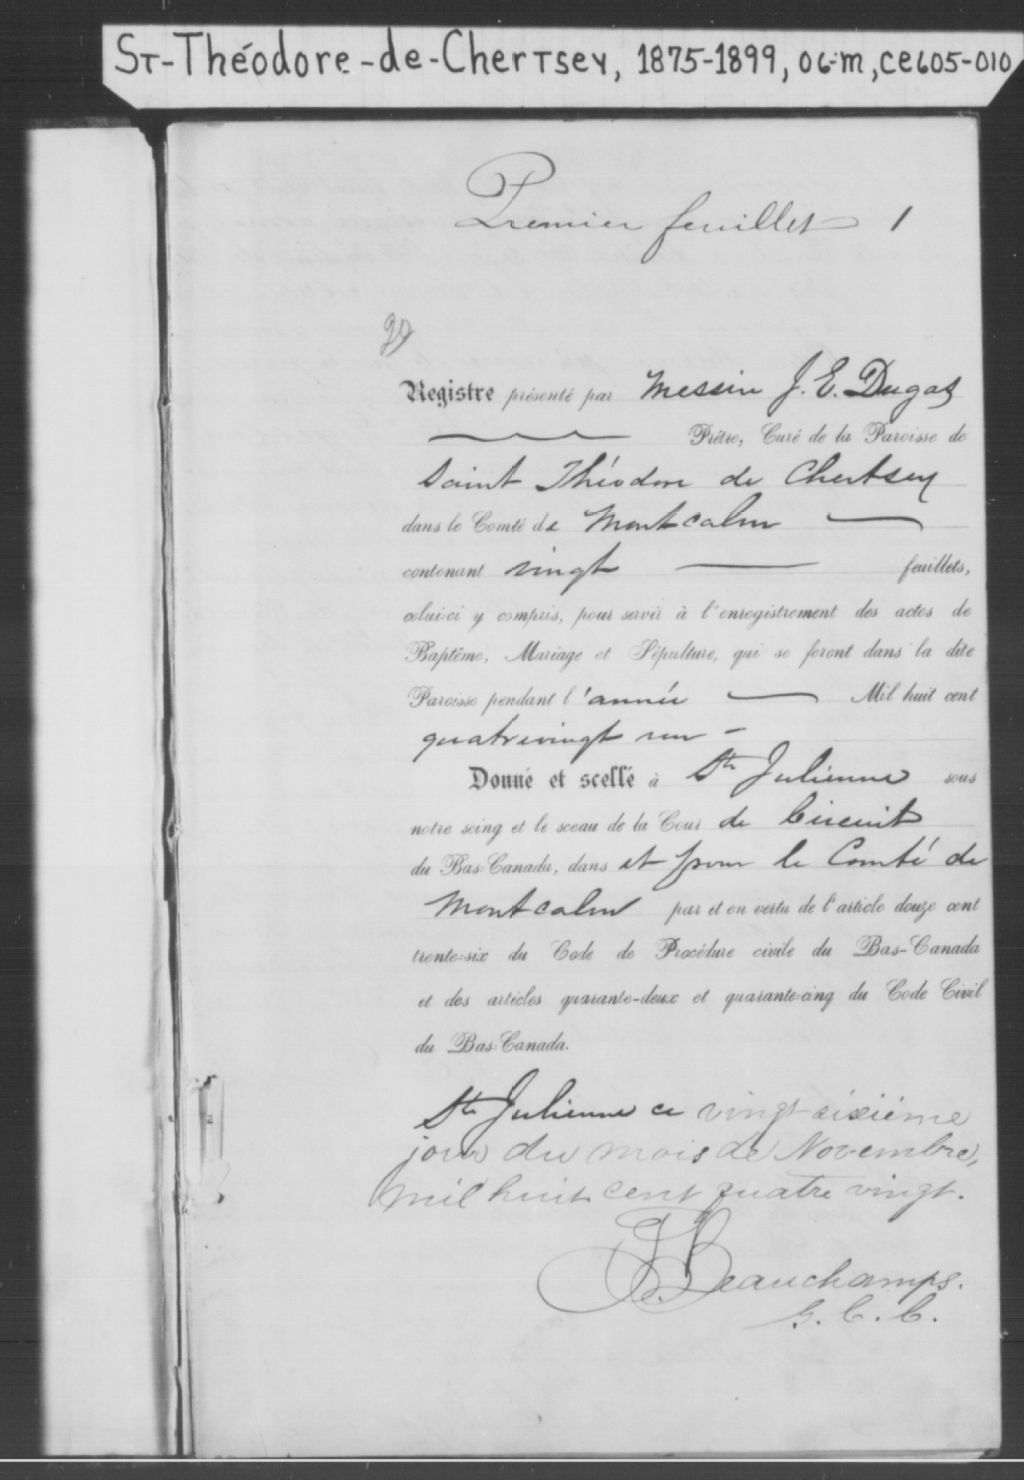 St-Théodore-de-Chertsey, 1875-1899, 06-m, ce605-010
Premier feuillet 1
Registre présenté par Messire J. E. Dugas
Prêtre, Curé de la Paroisse de
Saint Théodore de Chertsey
dans le Comté de Montcalm
contenant vingt feuillets,
celui-ci y compris, pour servir à l'enregistrement des actes de
Baptême, Mariage et Sépulture, qui se feront dans la dite
Paroisse pendant l'année Mil huit cent
quatrevingt un -
Donné et scellé à Ste Julienne sous
notre seing et le sceau de la Cour de Circuit
du Bas-Canada, dans et pour le Comté de
Montcalm par et en vertu de l'article douze cent
trente-six du Code de Procédure civile du Bas-Canada
et des articles quarante-deux et quarante-cinq du Code Civil
du Bas-Canada.
Ste Julienne ce vingt sixième
jour du mois de Novembre,
mil huit cent quatre vingt.
Beauchamps.
G. C. C.